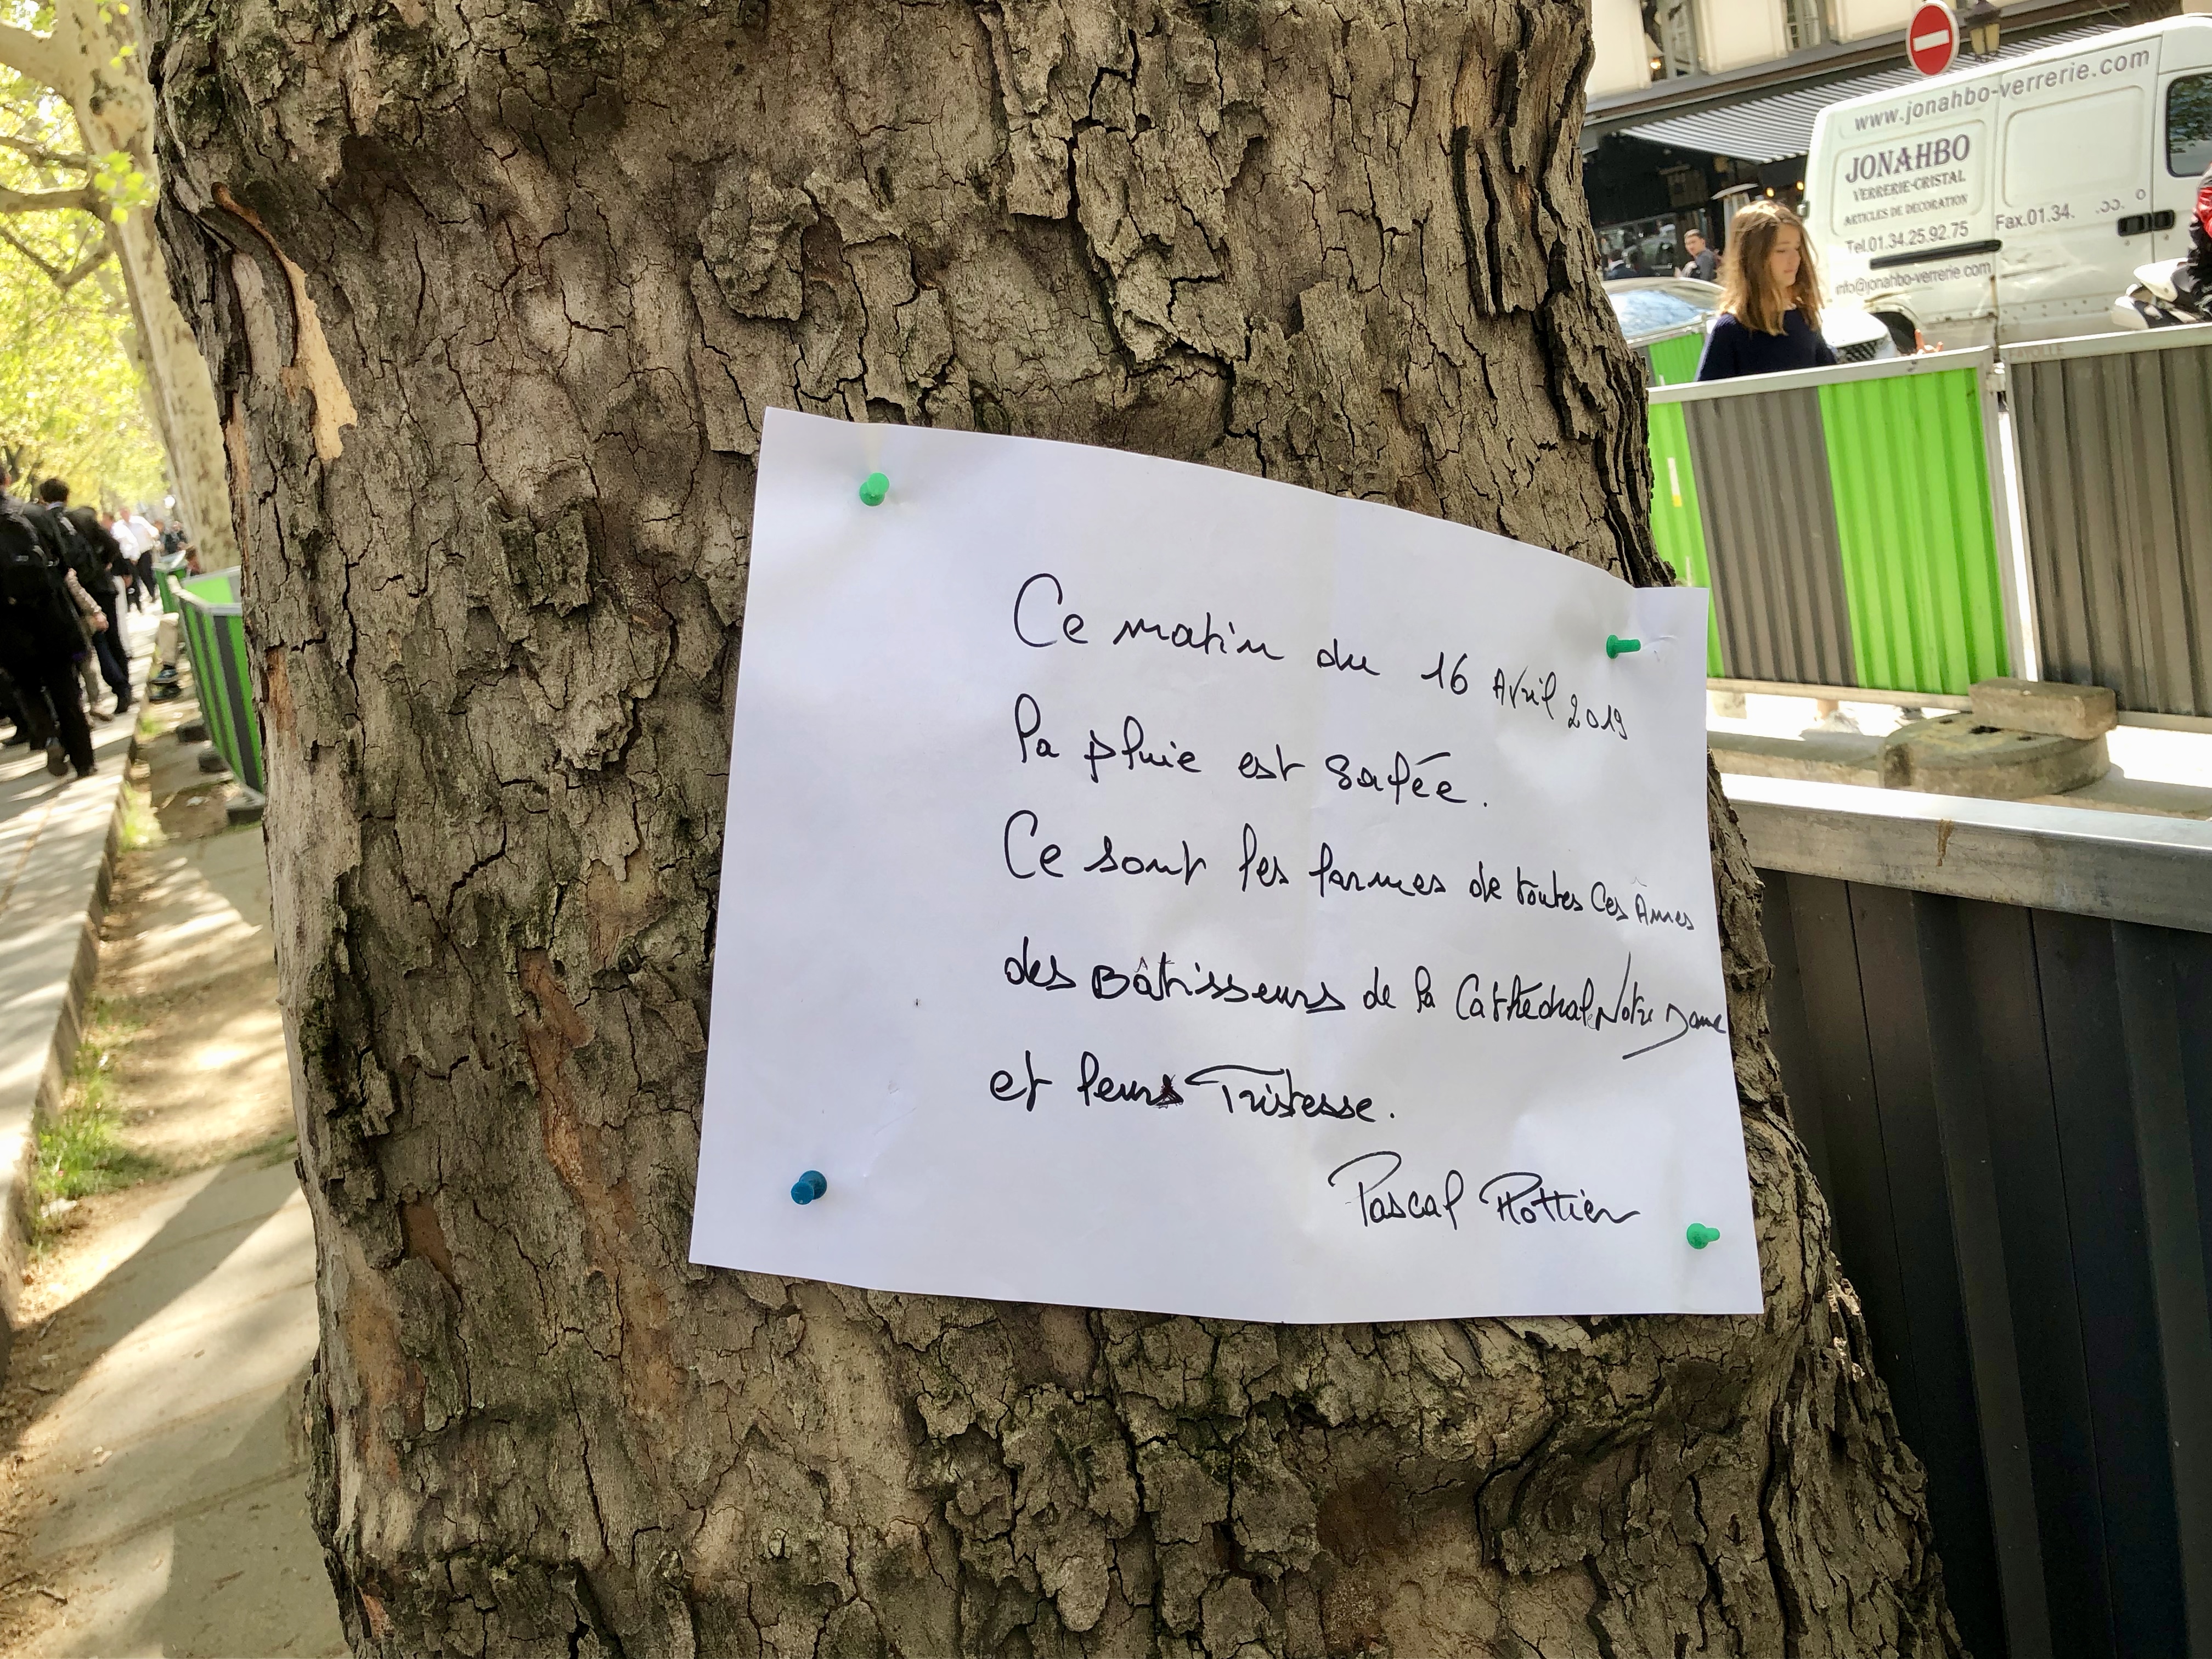 Ce matin du 16 Avril 2019
la pluie est salée.
Ce sont les larmes de toutes ces Âmes
des Bâtisseurs de la Cathédrale Notre Dame
et leurs Tristesse.
Pascal Pottier
www.jonahbo-verrerie.com
JONAHBO
VERRERIE-CRISTAL
ARTICLES DE DECORATION
Tel.01.34.25.92.75 Fax.01.34.
info@jonahbo-verrerie.com